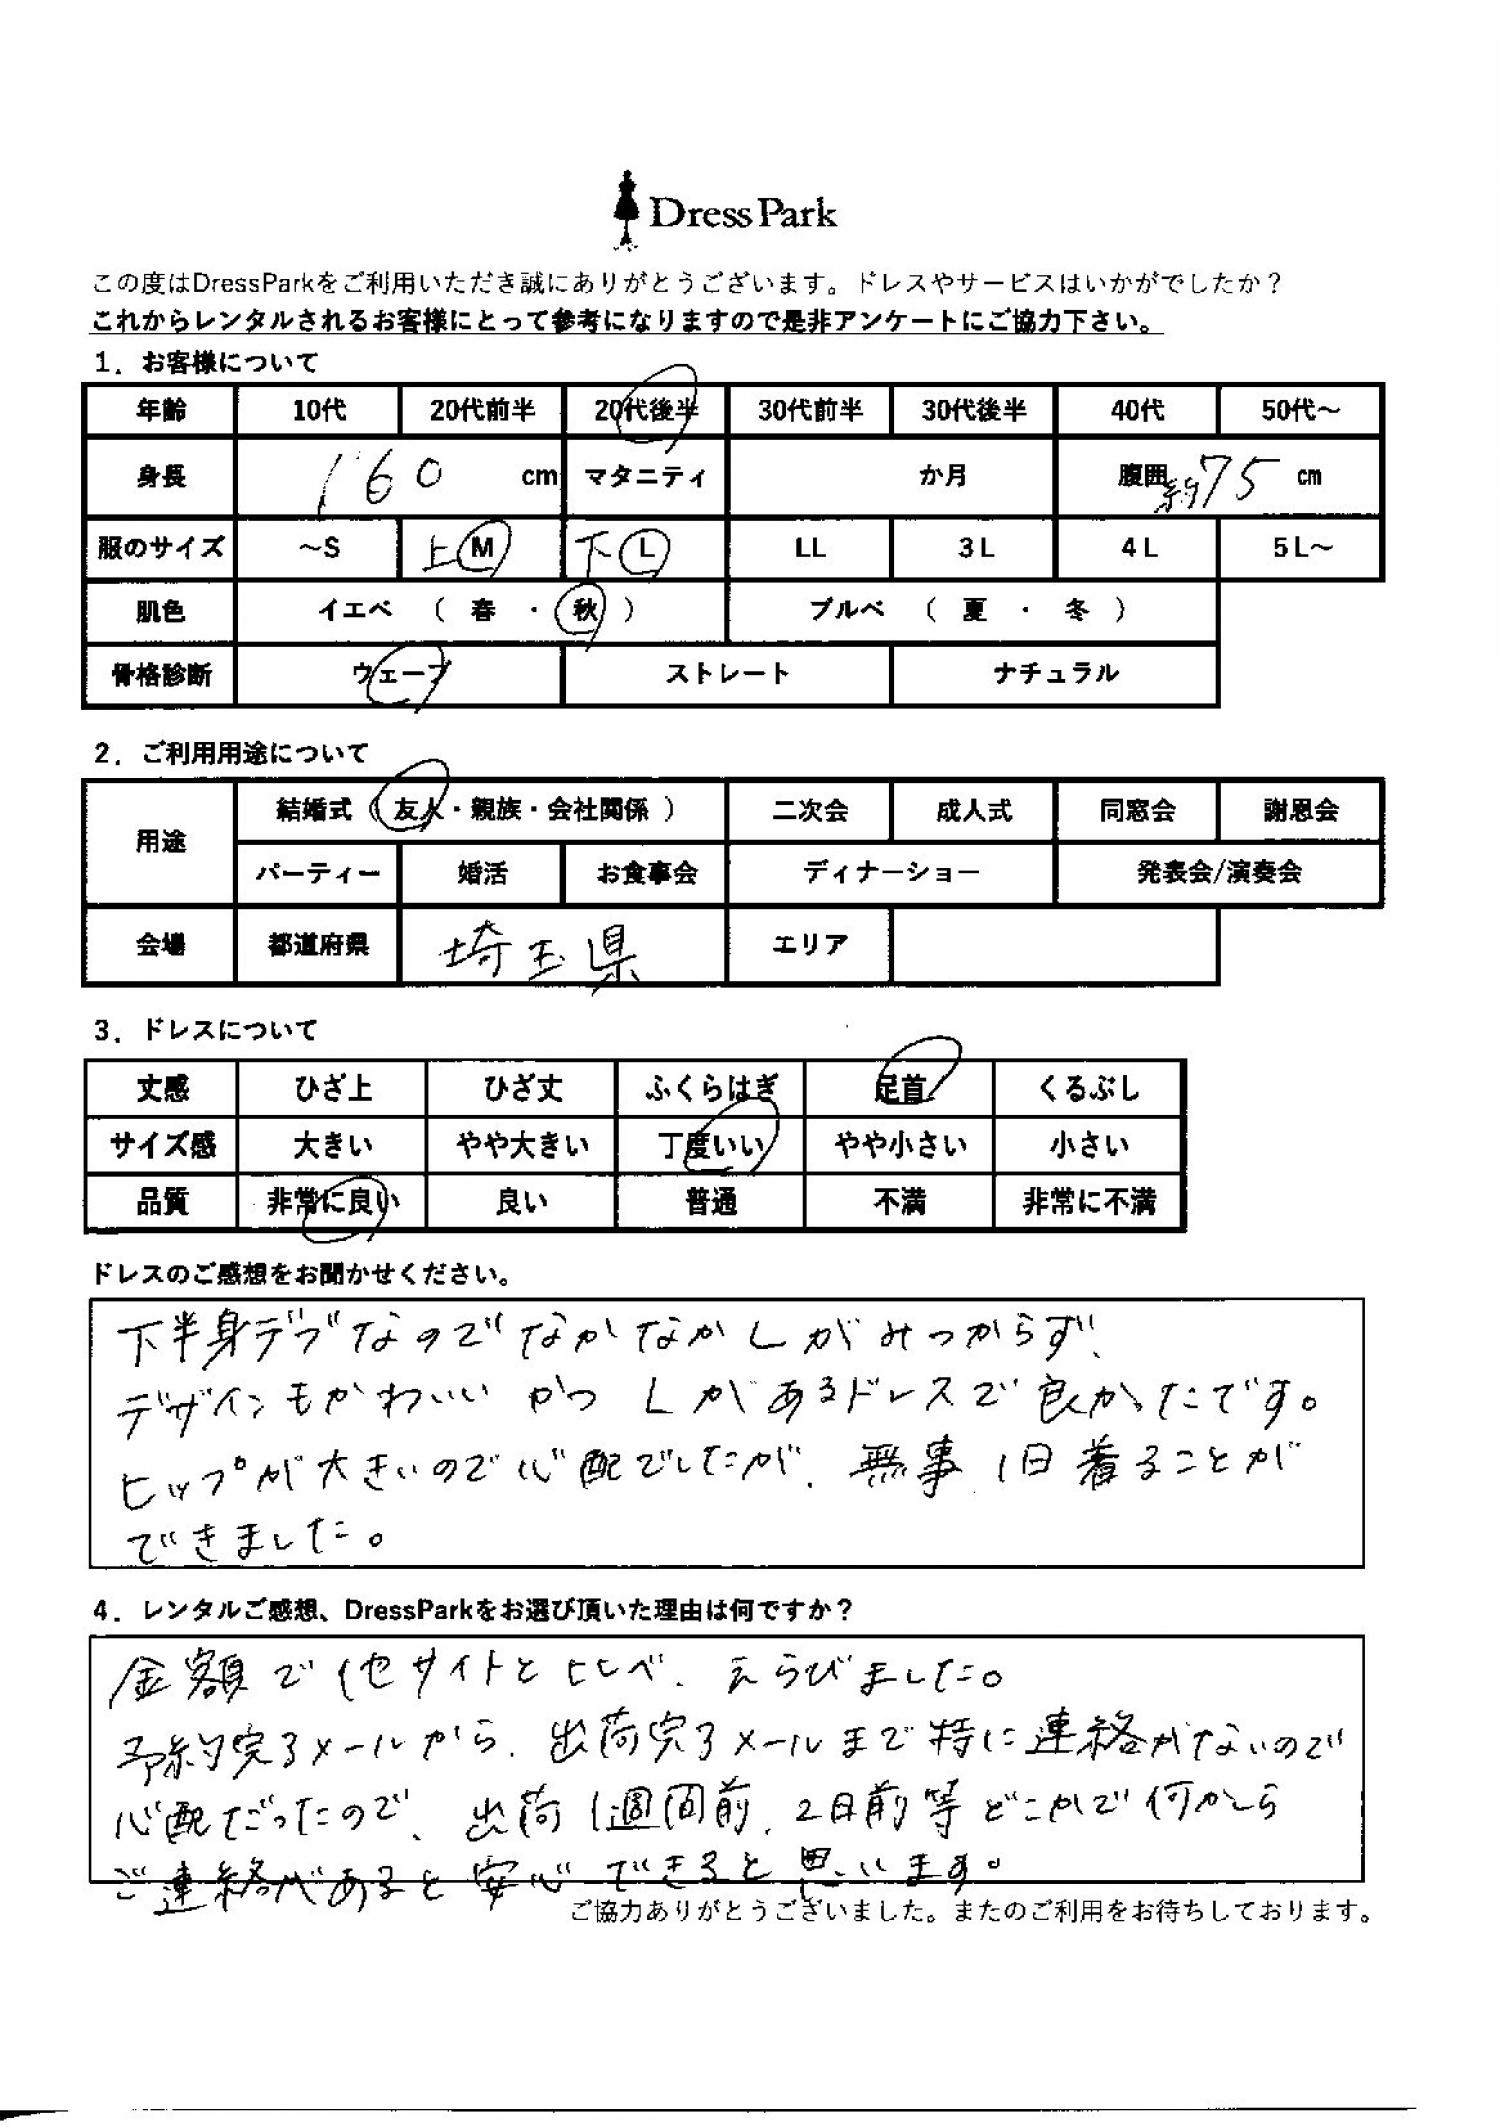 Dress Park
この度はDressParkをご利用いただき誠にありがとうございます。ドレスやサービスはいかがでしたか？
これからレンタルされるお客様にとって参考になりますので是非アンケートにご協力下さい。
1．お客様について
年齢 10代 20代前半 20代後半 30代前半 30代後半 40代 50代～
身長 160 cm マタニティ か月 腹囲 約75 cm
服のサイズ ～S 上 M 下 L LL 3L 4L 5L～
肌色 イエベ （ 春 ・ 秋 ） ブルベ （ 夏 ・ 冬 ）
骨格診断 ウェーブ ストレート ナチュラル
2．ご利用用途について
用途 結婚式（ 友人・親族・会社関係 ） 二次会 成人式 同窓会 謝恩会
パーティー 婚活 お食事会 ディナーショー 発表会/演奏会
会場 都道府県 埼玉県 エリア
3．ドレスについて
丈感 ひざ上 ひざ丈 ふくらはぎ 足首 くるぶし
サイズ感 大きい やや大きい 丁度いい やや小さい 小さい
品質 非常に良い 良い 普通 不満 非常に不満
ドレスのご感想をお聞かせください。
下半身デブなのでなかなかLがみつからず、
デザインもかわいい かつ Lがあるドレスで良かったです。
ヒップが大きいので心配でしたが、無事、1日着ることが
できました。
4．レンタルご感想、DressParkをお選び頂いた理由は何ですか？
金額で他サイトとヒヒべ、えらびました。
予約完了メールから、出荷完了メールまで特に連絡がないので
心配だったので、出荷1週間前、2日前等どこかで何かしら
ご連絡があると安心できると思います。
ご協力ありがとうございました。またのご利用をお待ちしております。